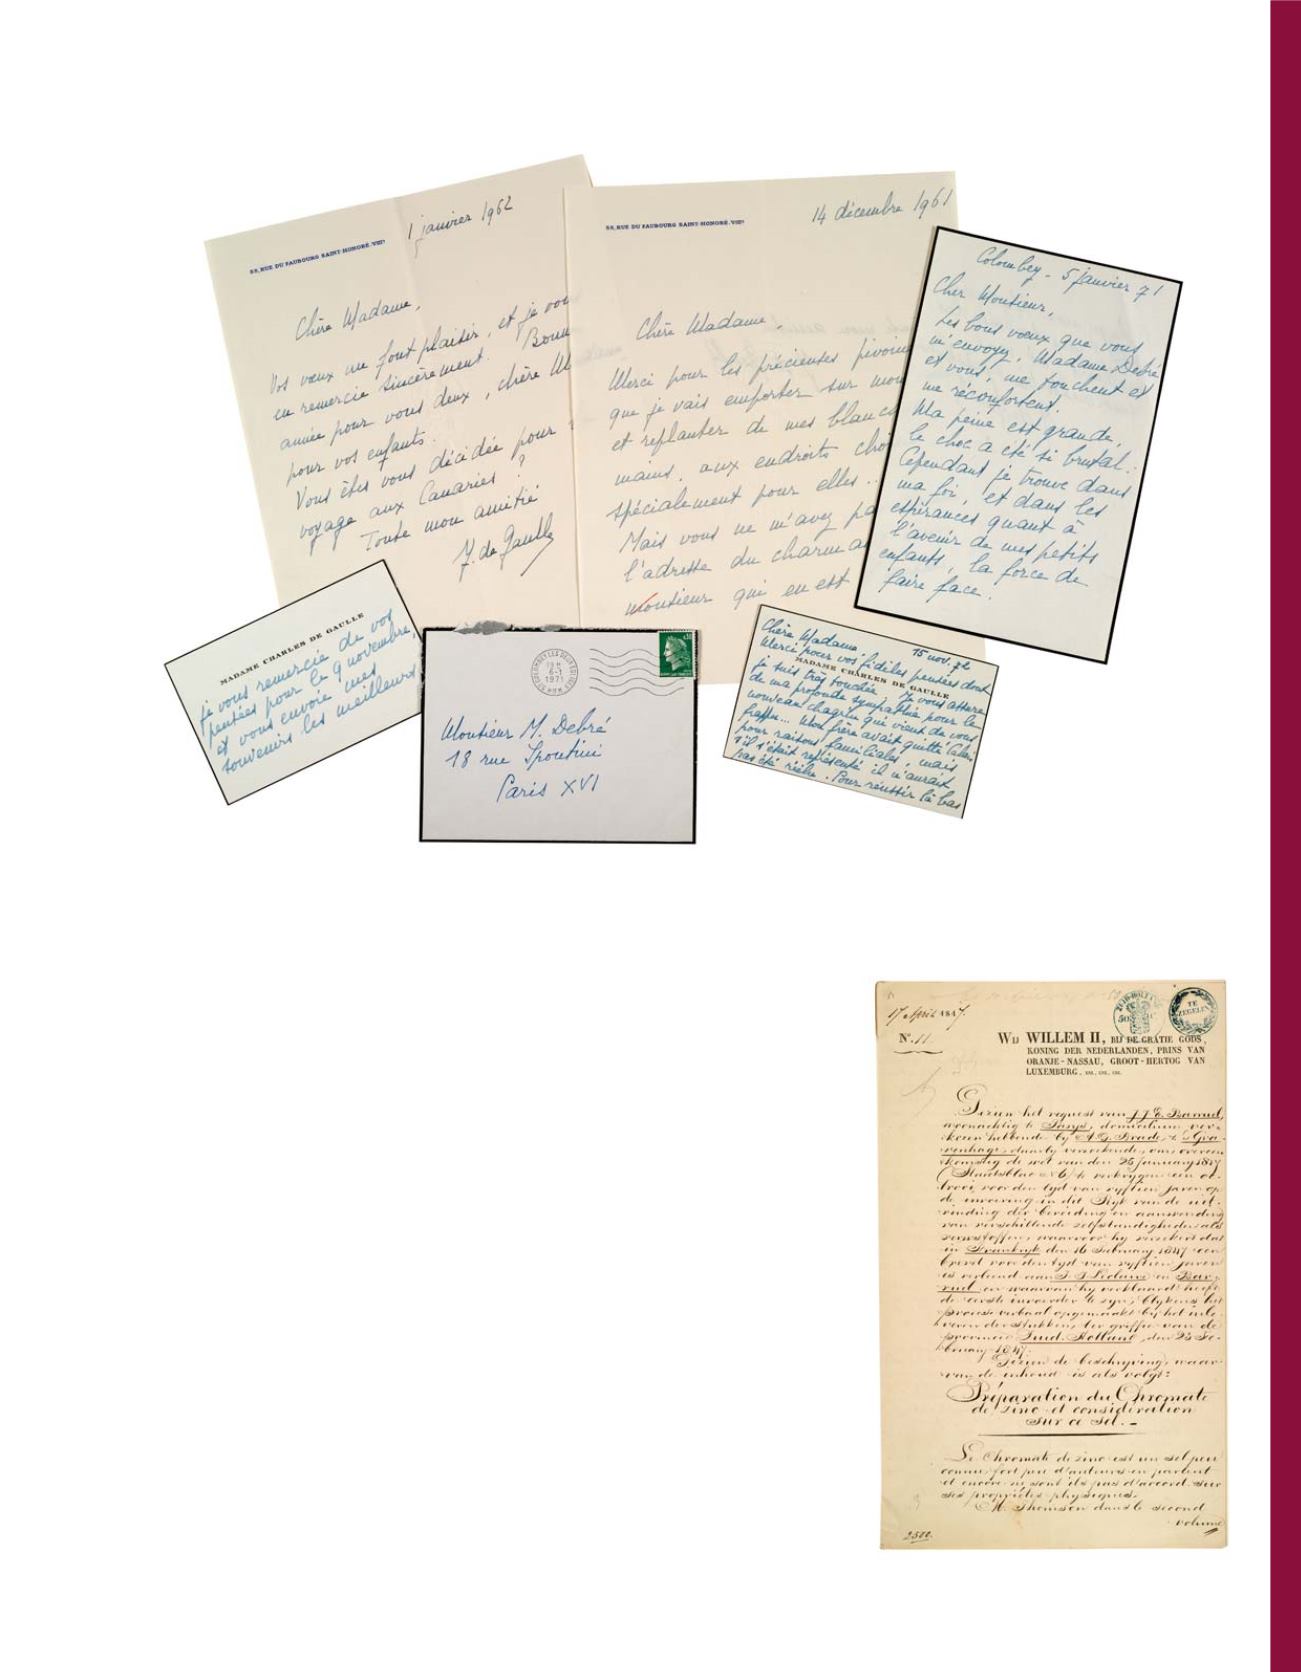 1 janvier 1962
55, RUE DU FAUBOURG SAINT-HONORÉ. VIIIᵉ
Chère Madame,
Vos vœux me font plaisir, et je vou
en remercie sincèrement. Bonn
année pour vous deux, chère M
pour vos enfants.
Vous êtes vous décidée pour
voyage aux Canaries ?
Toute mon amitié
Y. de Gaulle
14 décembre 1961
55, RUE DU FAUBOURG SAINT-HONORÉ. VIIIᵉ
Chère Madame,
Merci pour les précieuses pivoin
que je vais emporter sur mon
et replanter de mes blanch
mains, aux endroits choi
spécialement pour elles..
Mais vous ne m'avez pa
l'adresse du charma
monsieur qui en est
Colombey - 5 janvier 71
Cher Monsieur,
Les bons vœux que vous
m'envoyez, Madame Debré
et vous, me touchent et
me réconfortent.
Ma peine est grande,
le choc a été si brutal.
Cependant je trouve dans
ma foi, et dans les
espérances quant à
l'avenir de mes petits
enfants, la force de
faire face.
MADAME CHARLES DE GAULLE
je vous remercie de vos
pensées pour le 9 novembre,
et vous envoie mes
souvenirs les meilleurs
COLOMBEY LES DEUX EGLISES
6-1
1971
Monsieur M. Debré
18 rue Spontini
Paris XVI
Chère Madame 15 nov. 72
Merci pour vos fidèles pensées dont
MADAME CHARLES DE GAULLE
je suis très touchée, Je vous assure
de ma profonde sympathie pour le
nouveau chagrin qui vient de vous
frapper... Mon frère avait quitté Calais
pour raisons familiales, mais
s'il s'était représenté il n'aurait
pas été réélu. Pour réussir là bas
17 April 1847.
ZUID-HOLLAND
TE
ZEGELEN
Nº. 11.
WIJ WILLEM II, BIJ DE GRATIE GODS,
KONING DER NEDERLANDEN, PRINS VAN
ORANJE-NASSAU, GROOT-HERTOG VAN
LUXEMBURG, ENZ., ENZ., ENZ.
Gezien het request van J. J. E. Barruel,
woonachtig te Parys, domicilium ver-
kozen hebbende by A. G. Brade, te 's Gra-
venhage, daarby verzoekende, om overeen
komstig de wet van den 25 January 1817
(Staatsblad Nº 6) te verkrygen een oc-
trooi, voor den tyd van vyftien jaren op
de invoering in dit Ryk van de uit-
vinding der bereiding en aanwending
van verschillende zelfstandigheden als
verwstoffen, waarvoor hy verzekert dat
in Frankryk den 16 February 1847 een
brevet voor den tyd van vyftien jaren
is verleend aan J. Leclaire en Bar-
ruel, en waarvan hy verklaard heeft
de eerste invoerder te zyn; blykens het
proces-verbaal opgemaakt by het inle-
veren der stukken, ter griffie van de
provincie Zuid-Holland, den 23 Fe-
bruary 1847.
Gezien de beschryving, waar-
van de inhoud is als volgt:
Préparation du Chromate
de zinc et considération
sur ce sel. -
Le Chromate de zinc est un sel peu
connu, fort peu d'auteurs en parlent
et encore ne sont ils pas d'accord sur
ses propriétés physiques.
M. Thomson dans le second
volume
2500.